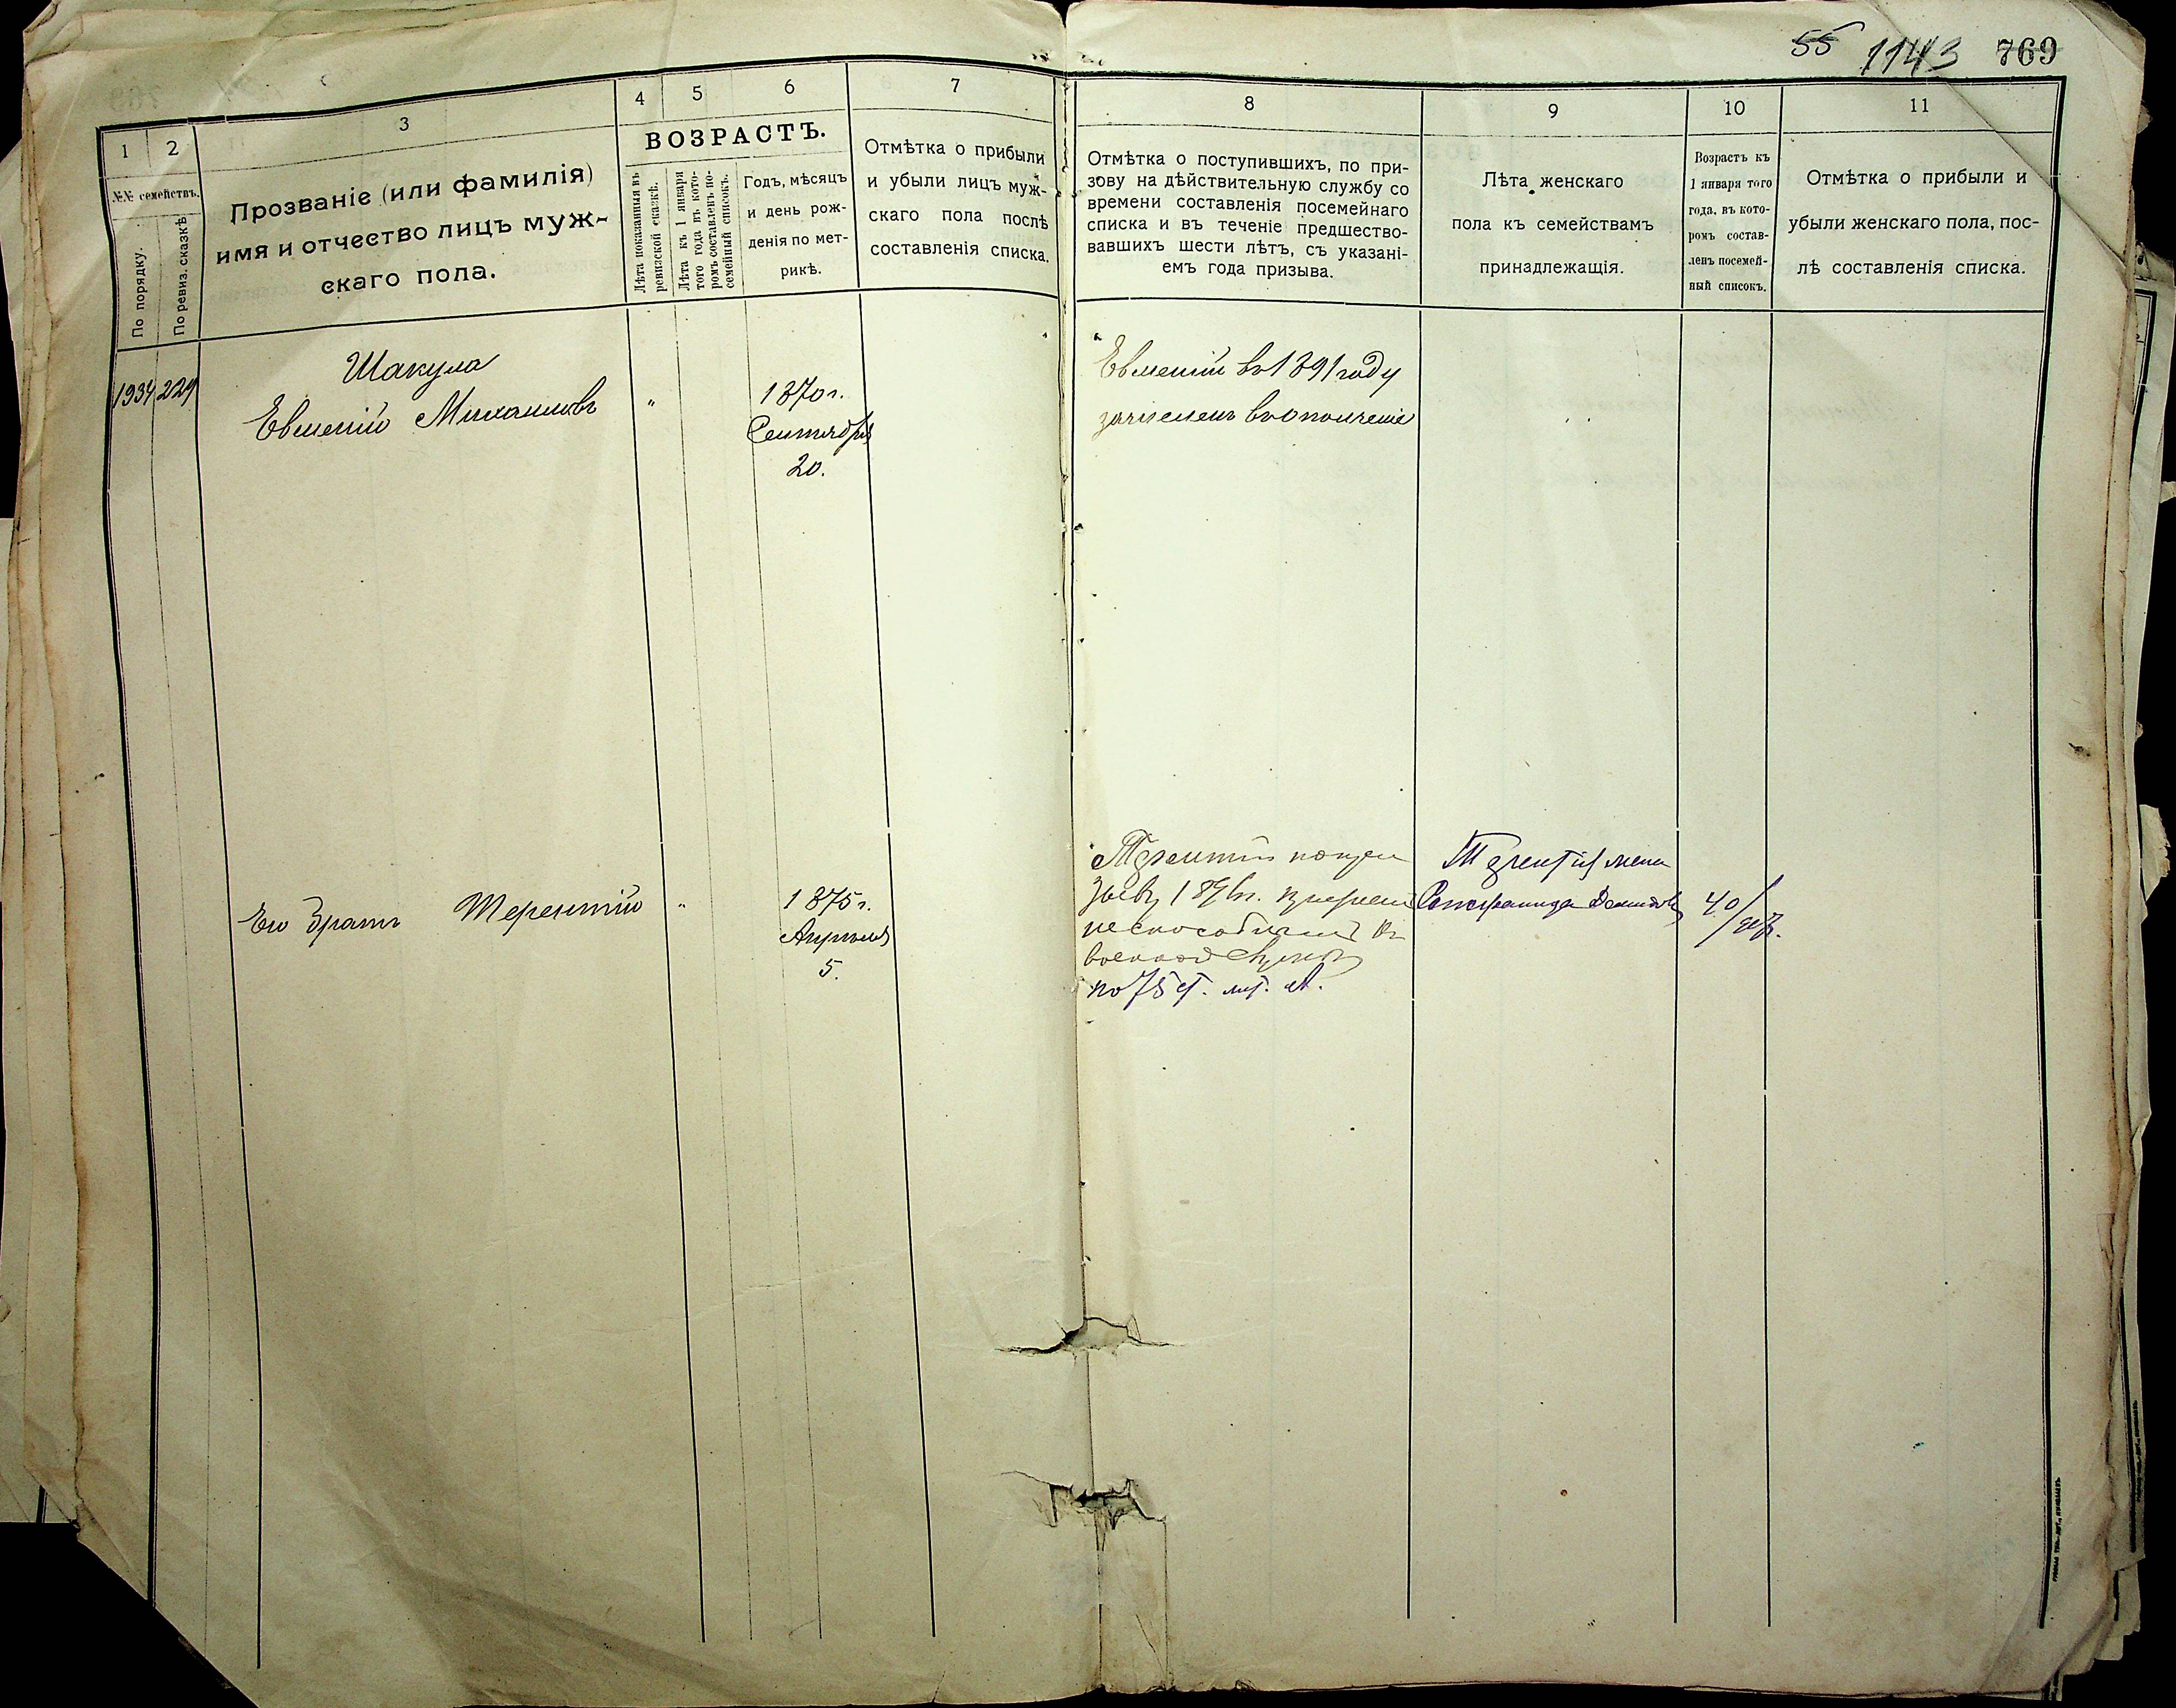 55 1143 769
1 2 3 4 5 6 7
№№ семействъ.
По порядку.
По ревиз. сказкѣ
Прозваніе (или фамилія)
имя и отчество лицъ муж-
скаго пола.
ВОЗРАСТЪ.
Лѣта показанныя въ
ревизской сказкѣ.
Лѣта къ 1 января
того года въ кото-
ромъ составленъ по-
семейный списокъ.
Годъ, мѣсяцъ
и день рож-
денія по мет-
рикѣ.
Отмѣтка о прибыли
и убыли лицъ муж-
скаго пола послѣ
составленія списка.
8 9 10 11
Отмѣтка о поступившихъ, по при-
зову на дѣйствительную службу со
времени составленія посемейнаго
списка и въ теченіе предшество-
вавшихъ шести лѣтъ, съ указані-
емъ года призыва.
Лѣта женскаго
пола къ семействамъ
принадлежащія.
Возрастъ къ
1 января того
года, въ кото-
ромъ состав-
ленъ посемей-
ный списокъ.
Отмѣтка о прибыли и
убыли женскаго пола, пос-
лѣ составленія списка.
1934 229
Шакула
Евменій Михаиловъ
"
1870 г.
Сентября
20.
Евменій въ 1891 году
зачисленъ въ ополченіе
Его братъ Терентій
"
1875 г.
Апрѣля
5.
Терентій
неспособнымъ къ
военной службѣ
по 75 ст. лит. А.
Терентія жена
40